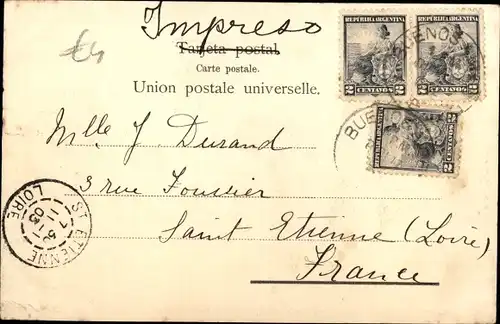 Impreso
Tarjeta postal.
Carte postale.
Union postale universelle.
REPÚBLICA ARGENTINA
2 CENTAVOS 2
REPÚBLICA ARGENTINA
2 CENTAVOS 2
REPÚBLICA ARGENTINA
2 CENTAVOS 2
BUENOS
Mlle J Durand
3 rue Foussier
Saint Etienne (Loire)
France
ST ETIENNE
LOIRE